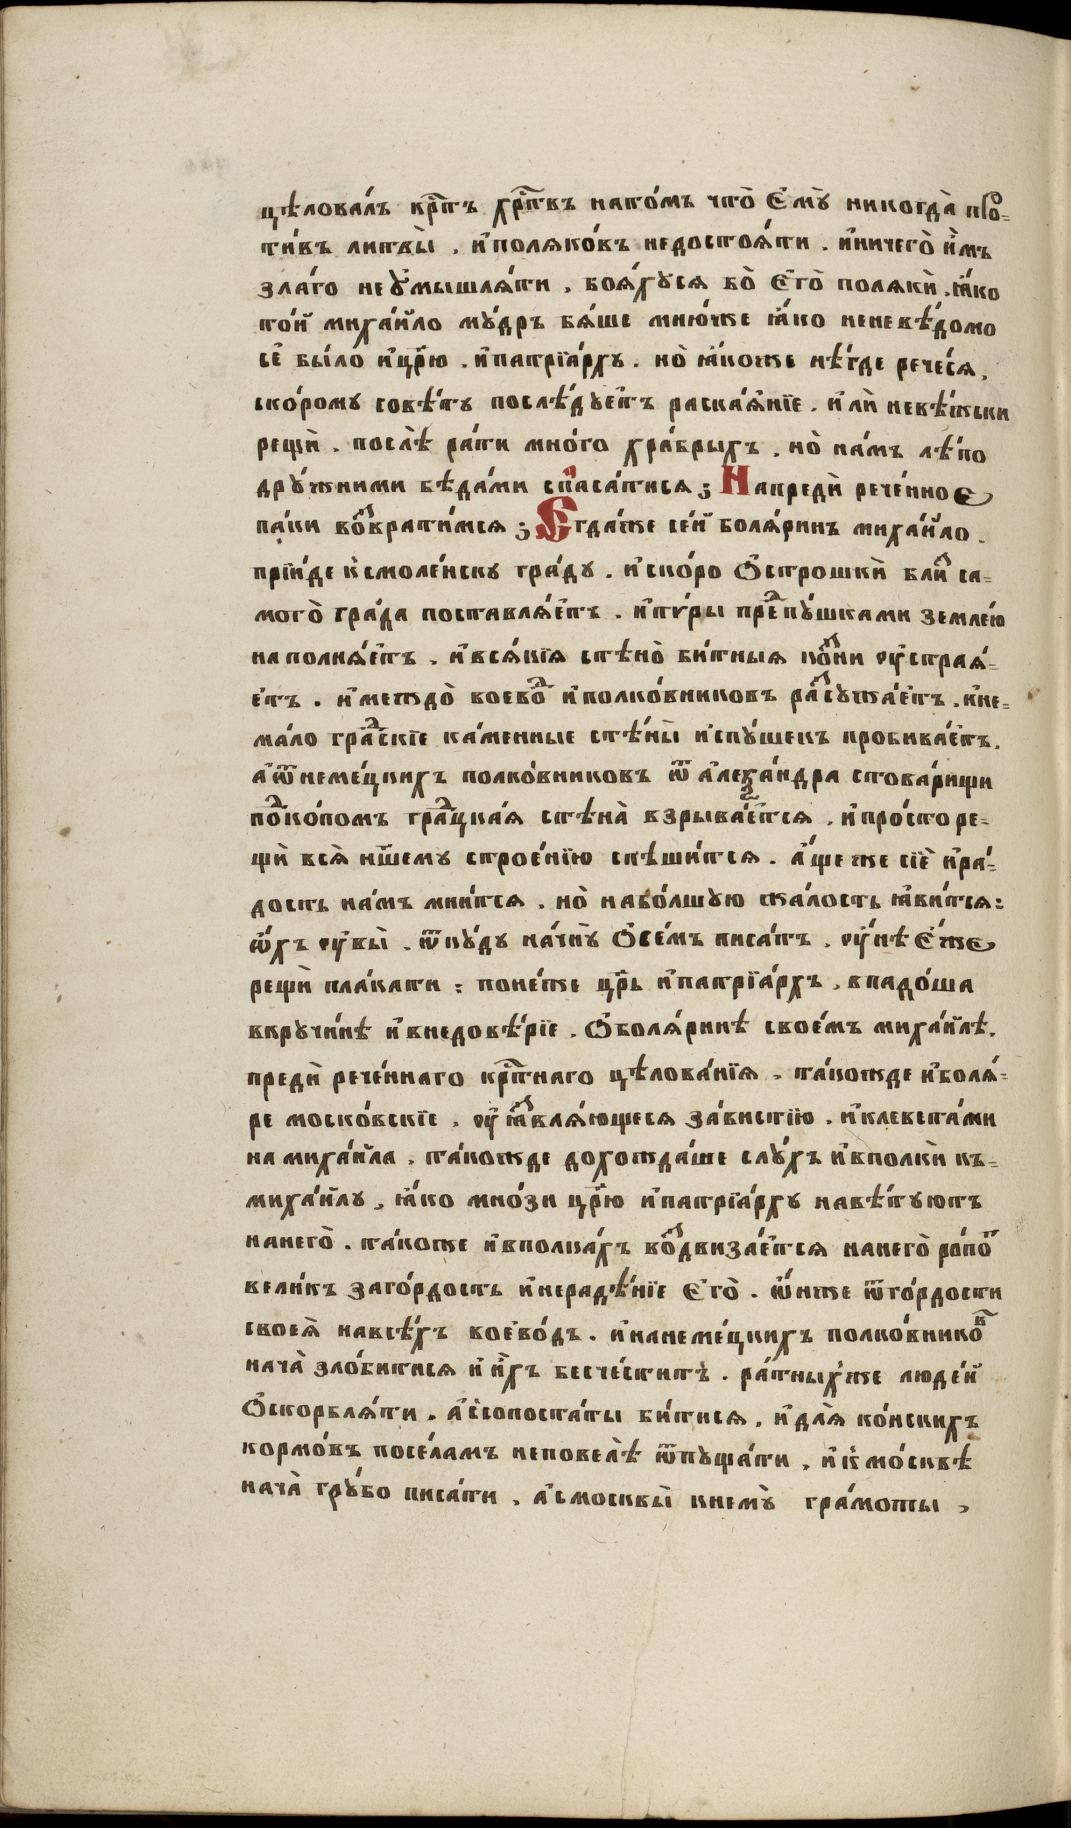 цѣлова́лъ крⷭ҇тъ хрⷭ҇твъ нато́мъ что̀ Є҆мꙋ̀ никогда̀ про-
ти́въ литвы̀ . и҆полѧко́въ недостоѧ́ти . и҆ничего̀ и҆̀мъ
зла́го неꙋ҆мышлѧ́ти . боѧ́хꙋсѧ бо̀ Є҆го̀ полѧкѝ . ꙗ҆́ко
то́й миха́йло мꙋ́дръ бѧ́ше мню́же ꙗ҆́ко неневѣ́домо
сѐ бы́ло и҆цр҃ю . и҆патрїа́рхꙋ . но̀ ꙗ҆́коже нѣ́где рече́сѧ ,
ско́ромꙋ совѣ́тꙋ послѣ́дꙋетъ раска́ѧнїе . и҆лѝ невѣ́жски
рещѝ . по́слѣ ра́ти мно́го хра́брыхъ . но̀ на́мъ лѣ́по
дрꙋ́жними бѣда́ми спаса́тисѧ ; Напредѝ рече́нноє
па́ки воⷥврати́мсѧ ; Єгда́же се́й болѧ́ринъ миха́йло .
прїи́де к̾смоле́нскꙋ гра́дꙋ . и҆ско́ро Ѻ҆строшкѝ блиⷥ са-
мого̀ гра́да поставлѧ́етъ . и҆тꙋ́ры преⷣпꙋ́шками землею
наполнѧ́етъ . и҆всѧ́кїѧ стѣно̀ би́тныѧ ко́ⷥни ᲂу҆страѧ́-
етъ . и҆междо̀ воево́ⷣ и҆полко́вниковъ раⷥсꙋжа́етъ . и҆не-
ма́ло граⷣскїе ка́менные стѣ́ны и҆спꙋ́шекъ пробива́етъ .
а҆ѿнеме́цкихъ полко́вниковъ ѿ а҆леѯа́ндра стова́рищи
поⷣко́помъ граⷣцка́ѧ стѣна̀ взрыва́етсѧ . и҆про́сто ре-
щѝ всѧ̀ нш҃емꙋ строе́нїю спѣши́тсѧ . а҆́ще же сїѐ и҆ра́-
дость на́мъ мни́тсѧ . но̀ набо́лшꙋю жа́лость ꙗ҆ви́тсѧ :
ѽхъ ᲂу҆вы̀ . ѿкꙋ́дꙋ начнꙋ̀ Ѻ҆се́мъ писа́тъ . ᲂу҆нѣ̀ Є҆́же
рещѝ пла́кати : поне́же цр҃ь и҆патрїа́рхъ , впадо́ша
вкрꙋчи́нꙋ и҆внедовѣ́рїе . Ѻ҆болѧ́ринѣ свое́мъ миха́йлѣ .
предѝ рече́ннаго крⷭ҇тнаго цѣлова́нїѧ . та́кожде и҆болѧ́-
ре моско́вскїе . ᲂу҆ꙗⷥвлѧ́ющесѧ за́вистїю . и҆клевета́ми
намиха́йла . та́кожде дохожда́ше слꙋ́хъ и҆вполкѝ къ-
миха́йлꙋ , ꙗ҆́ко мно́зи цр҃ю и҆патрїа́рхꙋ навѣ́тꙋютъ
нанего̀ . та́коже и҆вполка́хъ воⷥдвиза́етсѧ нанего̀ ро́поⷮ
вели́къ заго́рдость и҆нерадѣ́нїе Є҆го̀ . ѻ҆́нже ѿго́рдости
своеѧ̀ навсѣ́хъ воево́дъ . и҆нанеме́цкихъ полко́вникоⷡ
нача̀ зло́битисѧ и҆ и҆́хъ бесче́ститъ . ра́тныхже люде́й
Ѻ҆скорблѧ́ти . а҆ссопоста́ты би́тисѧ , и҆длѧ̀ ко́нскихъ
кормо́въ посе́ламъ неповелѣ̀ ѿпꙋща́ти , и҆к̾мо́сквѣ
нача̀ грꙋ́бо писа́ти . а҆смосквы̀ кнемꙋ̀ гра́моты ,